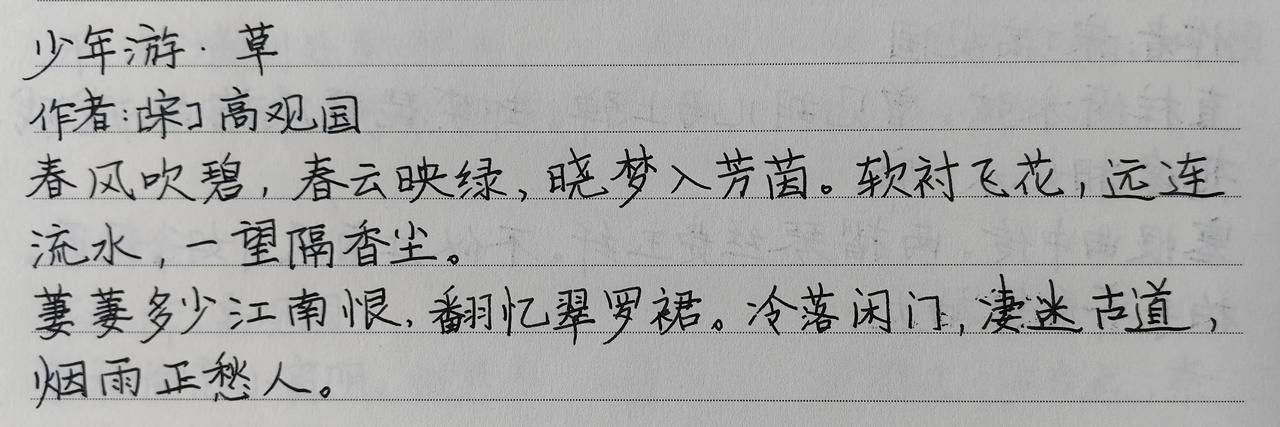 少年游·草
作者:[宋]高观国
春风吹碧，春云映绿，晓梦入芳茵。软衬飞花，远连
流水，一望隔香尘。
萋萋多少江南恨，翻忆翠罗裙。冷落闲门，凄迷古道，
烟雨正愁人。